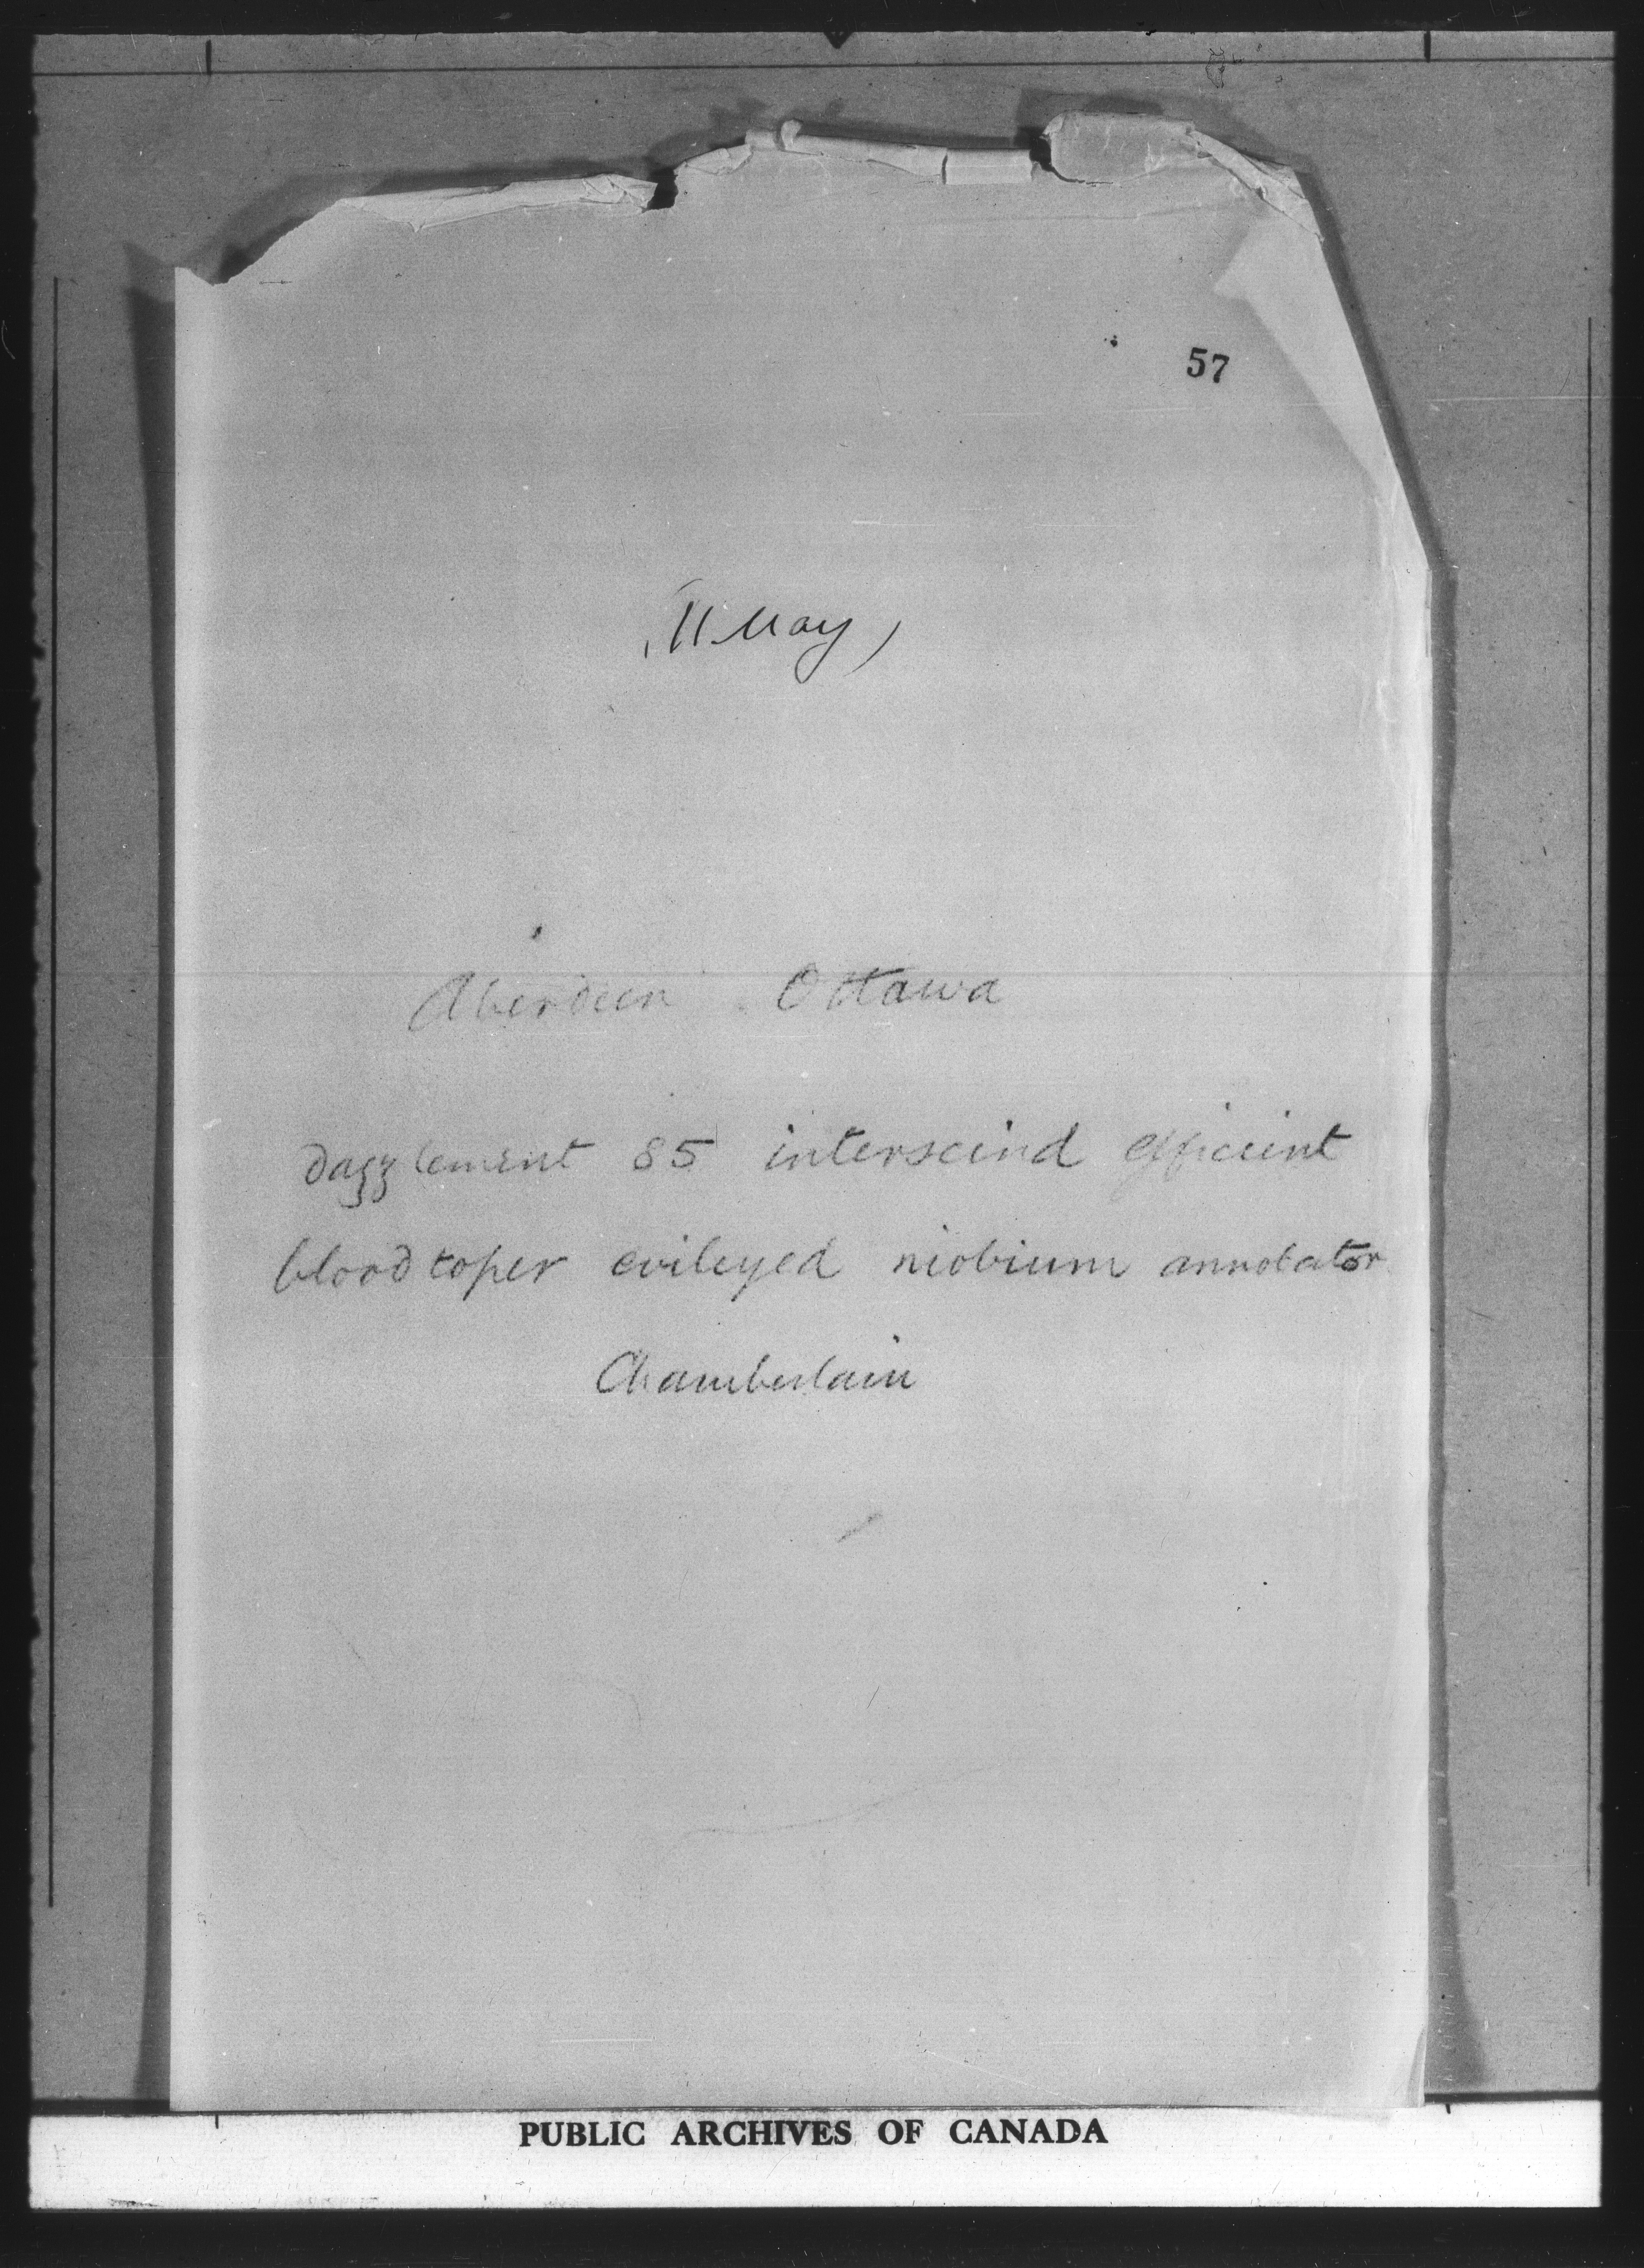 57
(11 May)
Aberdeen Ottawa
dazzlement 85 interscind efficient
bloodtoper evileyed niobium annotator
Chamberlain
PUBLIC ARCHIVES OF CANADA